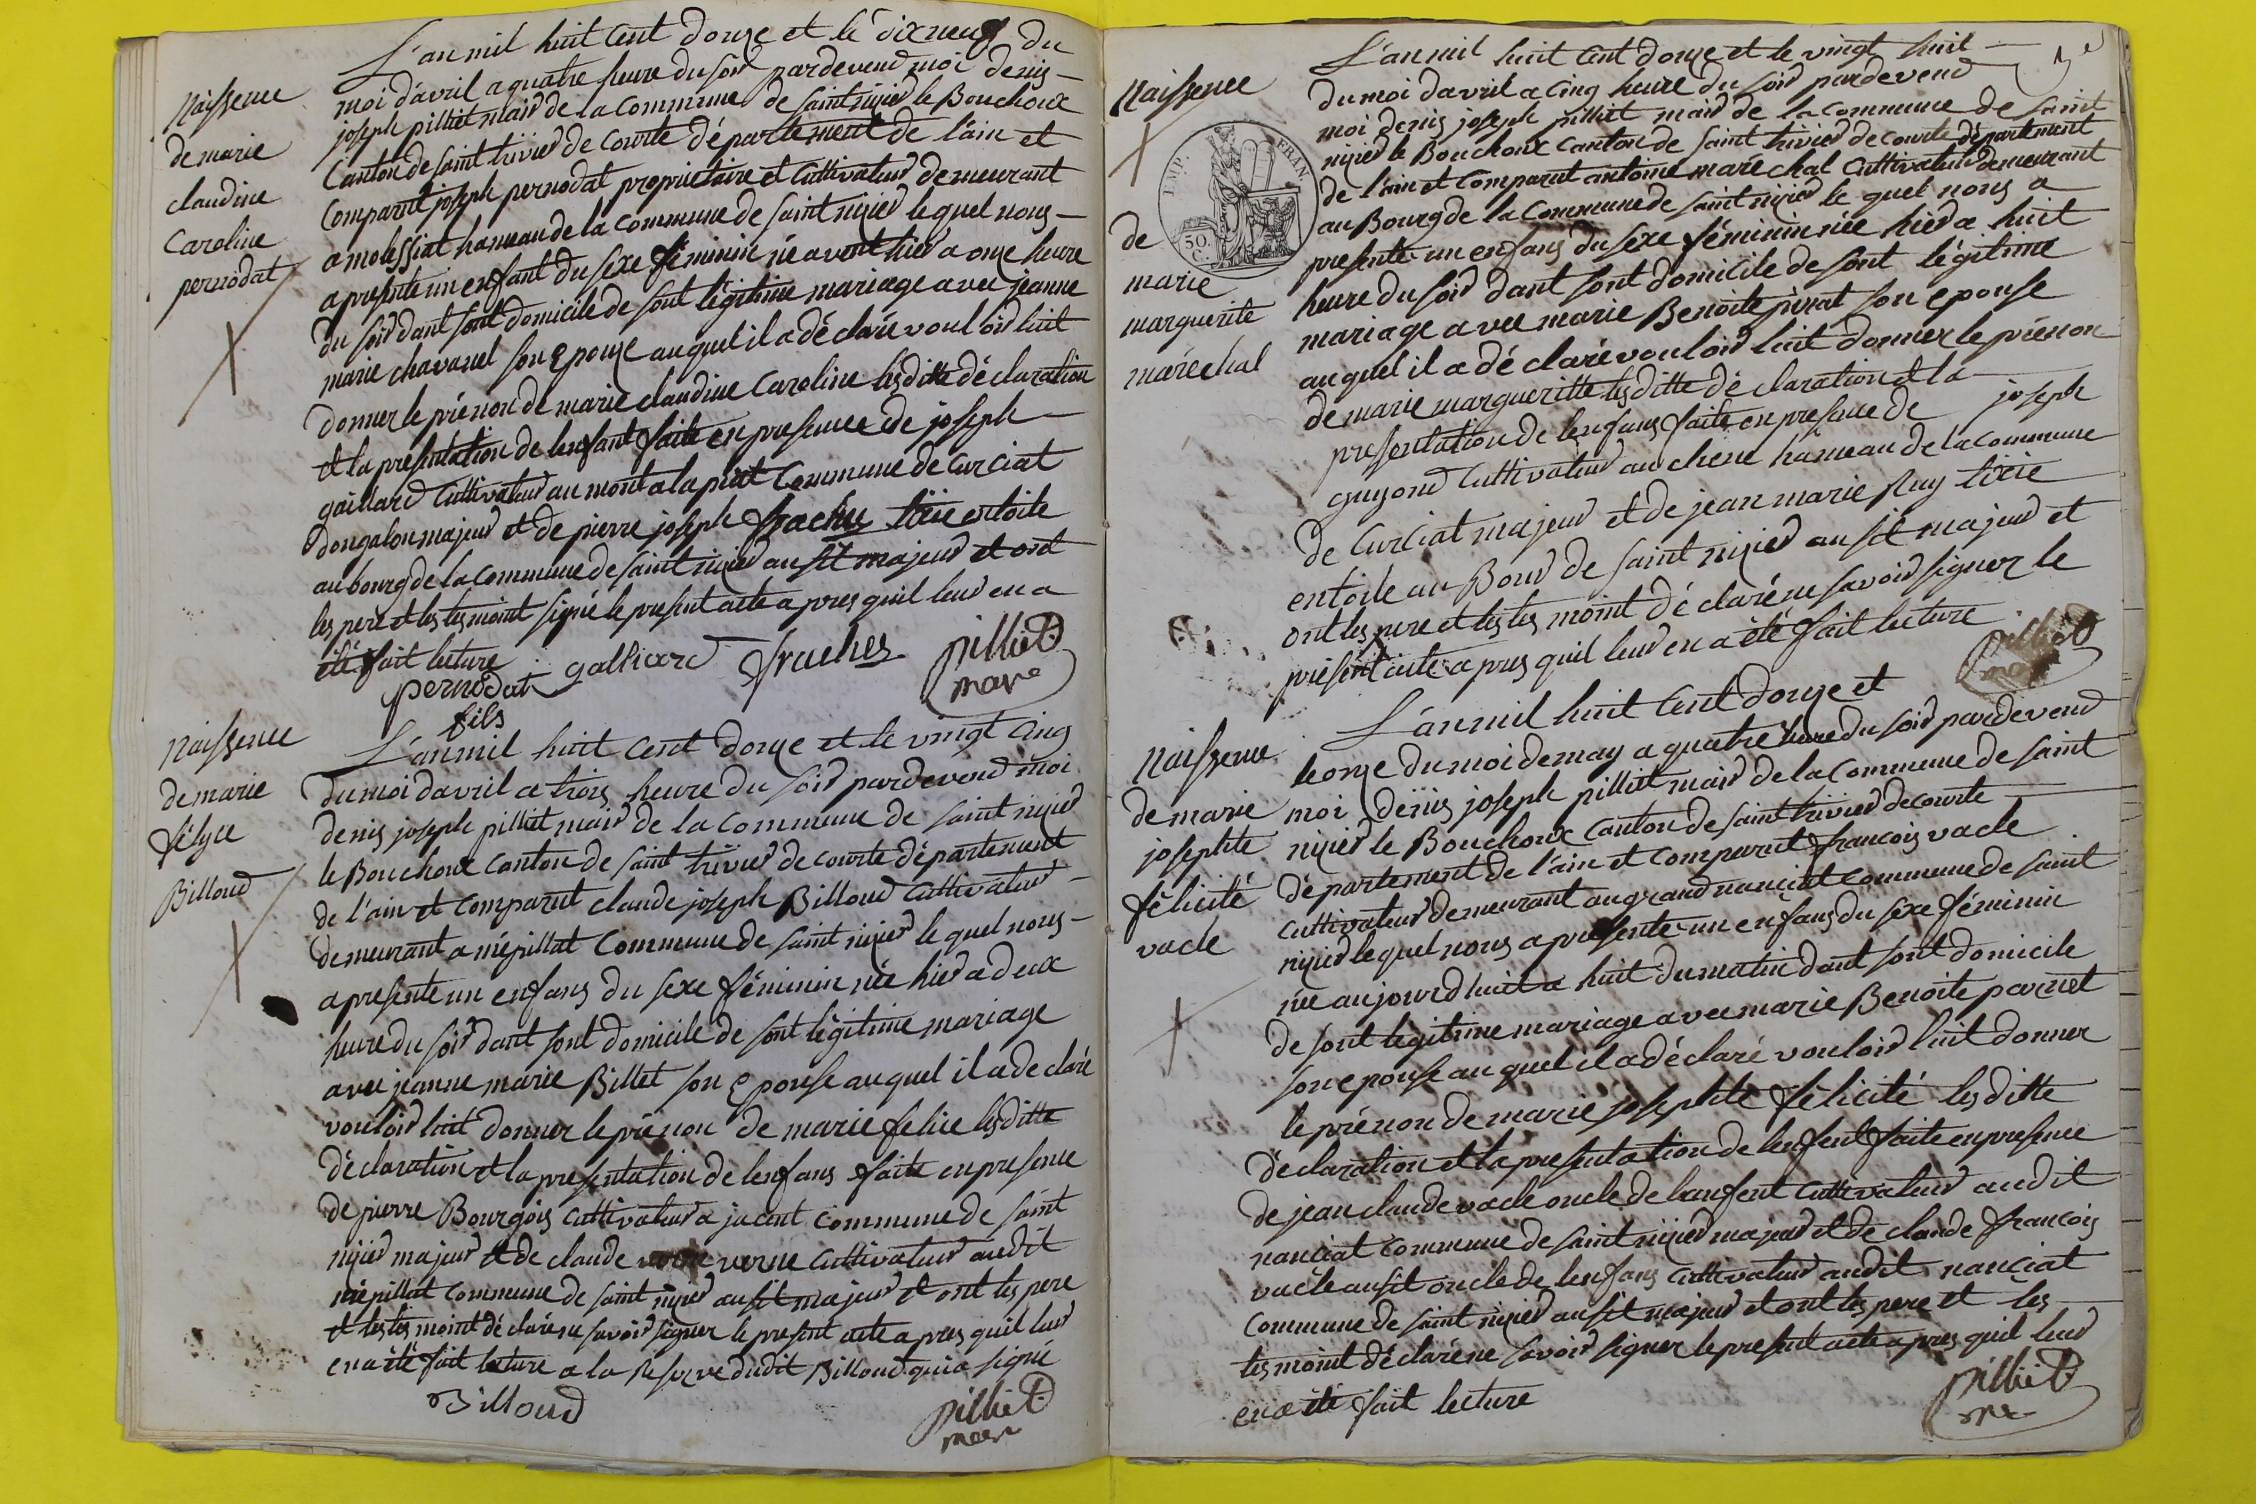 Naissence
de marie
claudine
Caroline
pernodat
L'an mil huit cent douze et le dixneuf du
moi d'avril a quatre heure du soir pardevend moi denis
joseph pilliet mair de la commune de saint nizier le Bouchoux
Canton de saint trivier de courte département de l'ain et
Comparut joseph pernodat proprietaire et Cultivateur demeurant
a molissiat hameau de la commune de saint nizier lequel nous
a presente un enfant du sexe féminin né avent hier a onze heure
du soir dant sont domicile de sont légitime mariage avec jeanne
marie chavanel son Epouze auquel il a déclaré vouloir luit
donner le prénon de marie claudine Caroline lesditte déclaration
et la presentation de lenfant faite en presence de joseph
gaillard Cultivateur au mont a la commune de Curciat
dongalon majeur et de pierre joseph frachez tixie entoile
au bourg de la commune de saint nizier ausit majeur et ont
les pere et les tesmoint signé le present acte apres quil leur en a
été fait lecture
pernodat galliard frachez pilliet
fils maire
Naissence
de marie
félyce
Billoud
L'an mil huit cent douze et le vingt cinq
du moi davril a trois heure du soir pardevend moi
denis joseph pilliet mair de la commune de saint nizier
le Bouchoux canton de saint trivier de courte département
de l'ain et comparut claude joseph Billoud cultivateur
demeurant a mépillat commune de saint nizier lequel nous
a presente un enfans du sexe féminin née hier a deux
heure du soir dant sont domicile de sont légitime mariage
avec jeanne marie Billet son Epouse auquel il a declaré
vouloir luit donner le prénon de marie felice lesditte
déclaration et la presentation de lenfans faite en presence
de pierre Bourgois cultivateur a jacent commune de saint
nizier majeur et de claude verne cultivateur audit
mépillat commune de saint nizier ausit majeur et ont les pere
et les tesmoint déclaré ne savoir signer le present acte apres quil leur
en a été fait lecture a la reserve dudit Billoud qui a signé
Billoud pilliet
maire
Naissence
EMP. FRAN.
50.
C.
de
marie
marguerite
maréchal
L'an mil huit cent douze et le vingt huit
du moi davril a cinq heure du soir pardevend
moi denis joseph pilliet mair de la commune de saint
nizier le Bouchoux canton de saint trivier de courte département
de l'ain et comparut antoine marechal cultivateur demeurant
au Bourg de la commune de saint nizier le quel nous a
presente un enfans du sexe féminin née hier a huit
heure du soir dant sont domicile de sont légitime
mariage avec marie Benoite pivat son epouse
auquel il a déclaré vouloir luit donner le prénon
de marie margueritte lesditte déclaration et la
presentation de lenfans faite en presence de joseph
guyond cultivateur au chene hameau de la commune
de Curciat majeur et de jean marie Ruy tixie
entoile au Bour de saint nizier ausit majeur et
ont les pere et les tesmoint déclaré ne savoir signer le
présent acte apres quil leur en a été fait lecture
pilliet
maire
Naissence
de marie
josephte
félicité
vacle
L'an mil huit cent douze et
le onze du moi de may a quatre heure du soir pardevend
moi denis joseph pilliet mair de la commune de saint
nizier le Bouchoux canton de saint trivier de courte
département de l'ain et comparut francois vacle
cultivateur demeurant au grand nanciat commune de saint
nizier lequel nous a presente un enfans du sexe féminin
née aujourdhuit a huit du matin dant sont domicile
de sont legitime mariage avec marie Benoite
son epouse auquel il a déclaré vouloir luit donner
le prénon de marie josephte félicité lesditte
déclaration et la presentation de lenfent faite en presence
de jean claude vacle oncle de lenfent cultivateur audit
nanciat commune de saint nizier majeur et de claude francois
vacle ausit oncle de lenfans cultivateur audit nanciat
commune de saint nizier ausit majeur et ont les pere et les
tesmoint déclaré ne savoir signer le present acte apres quil leur
en a été fait lecture
pilliet